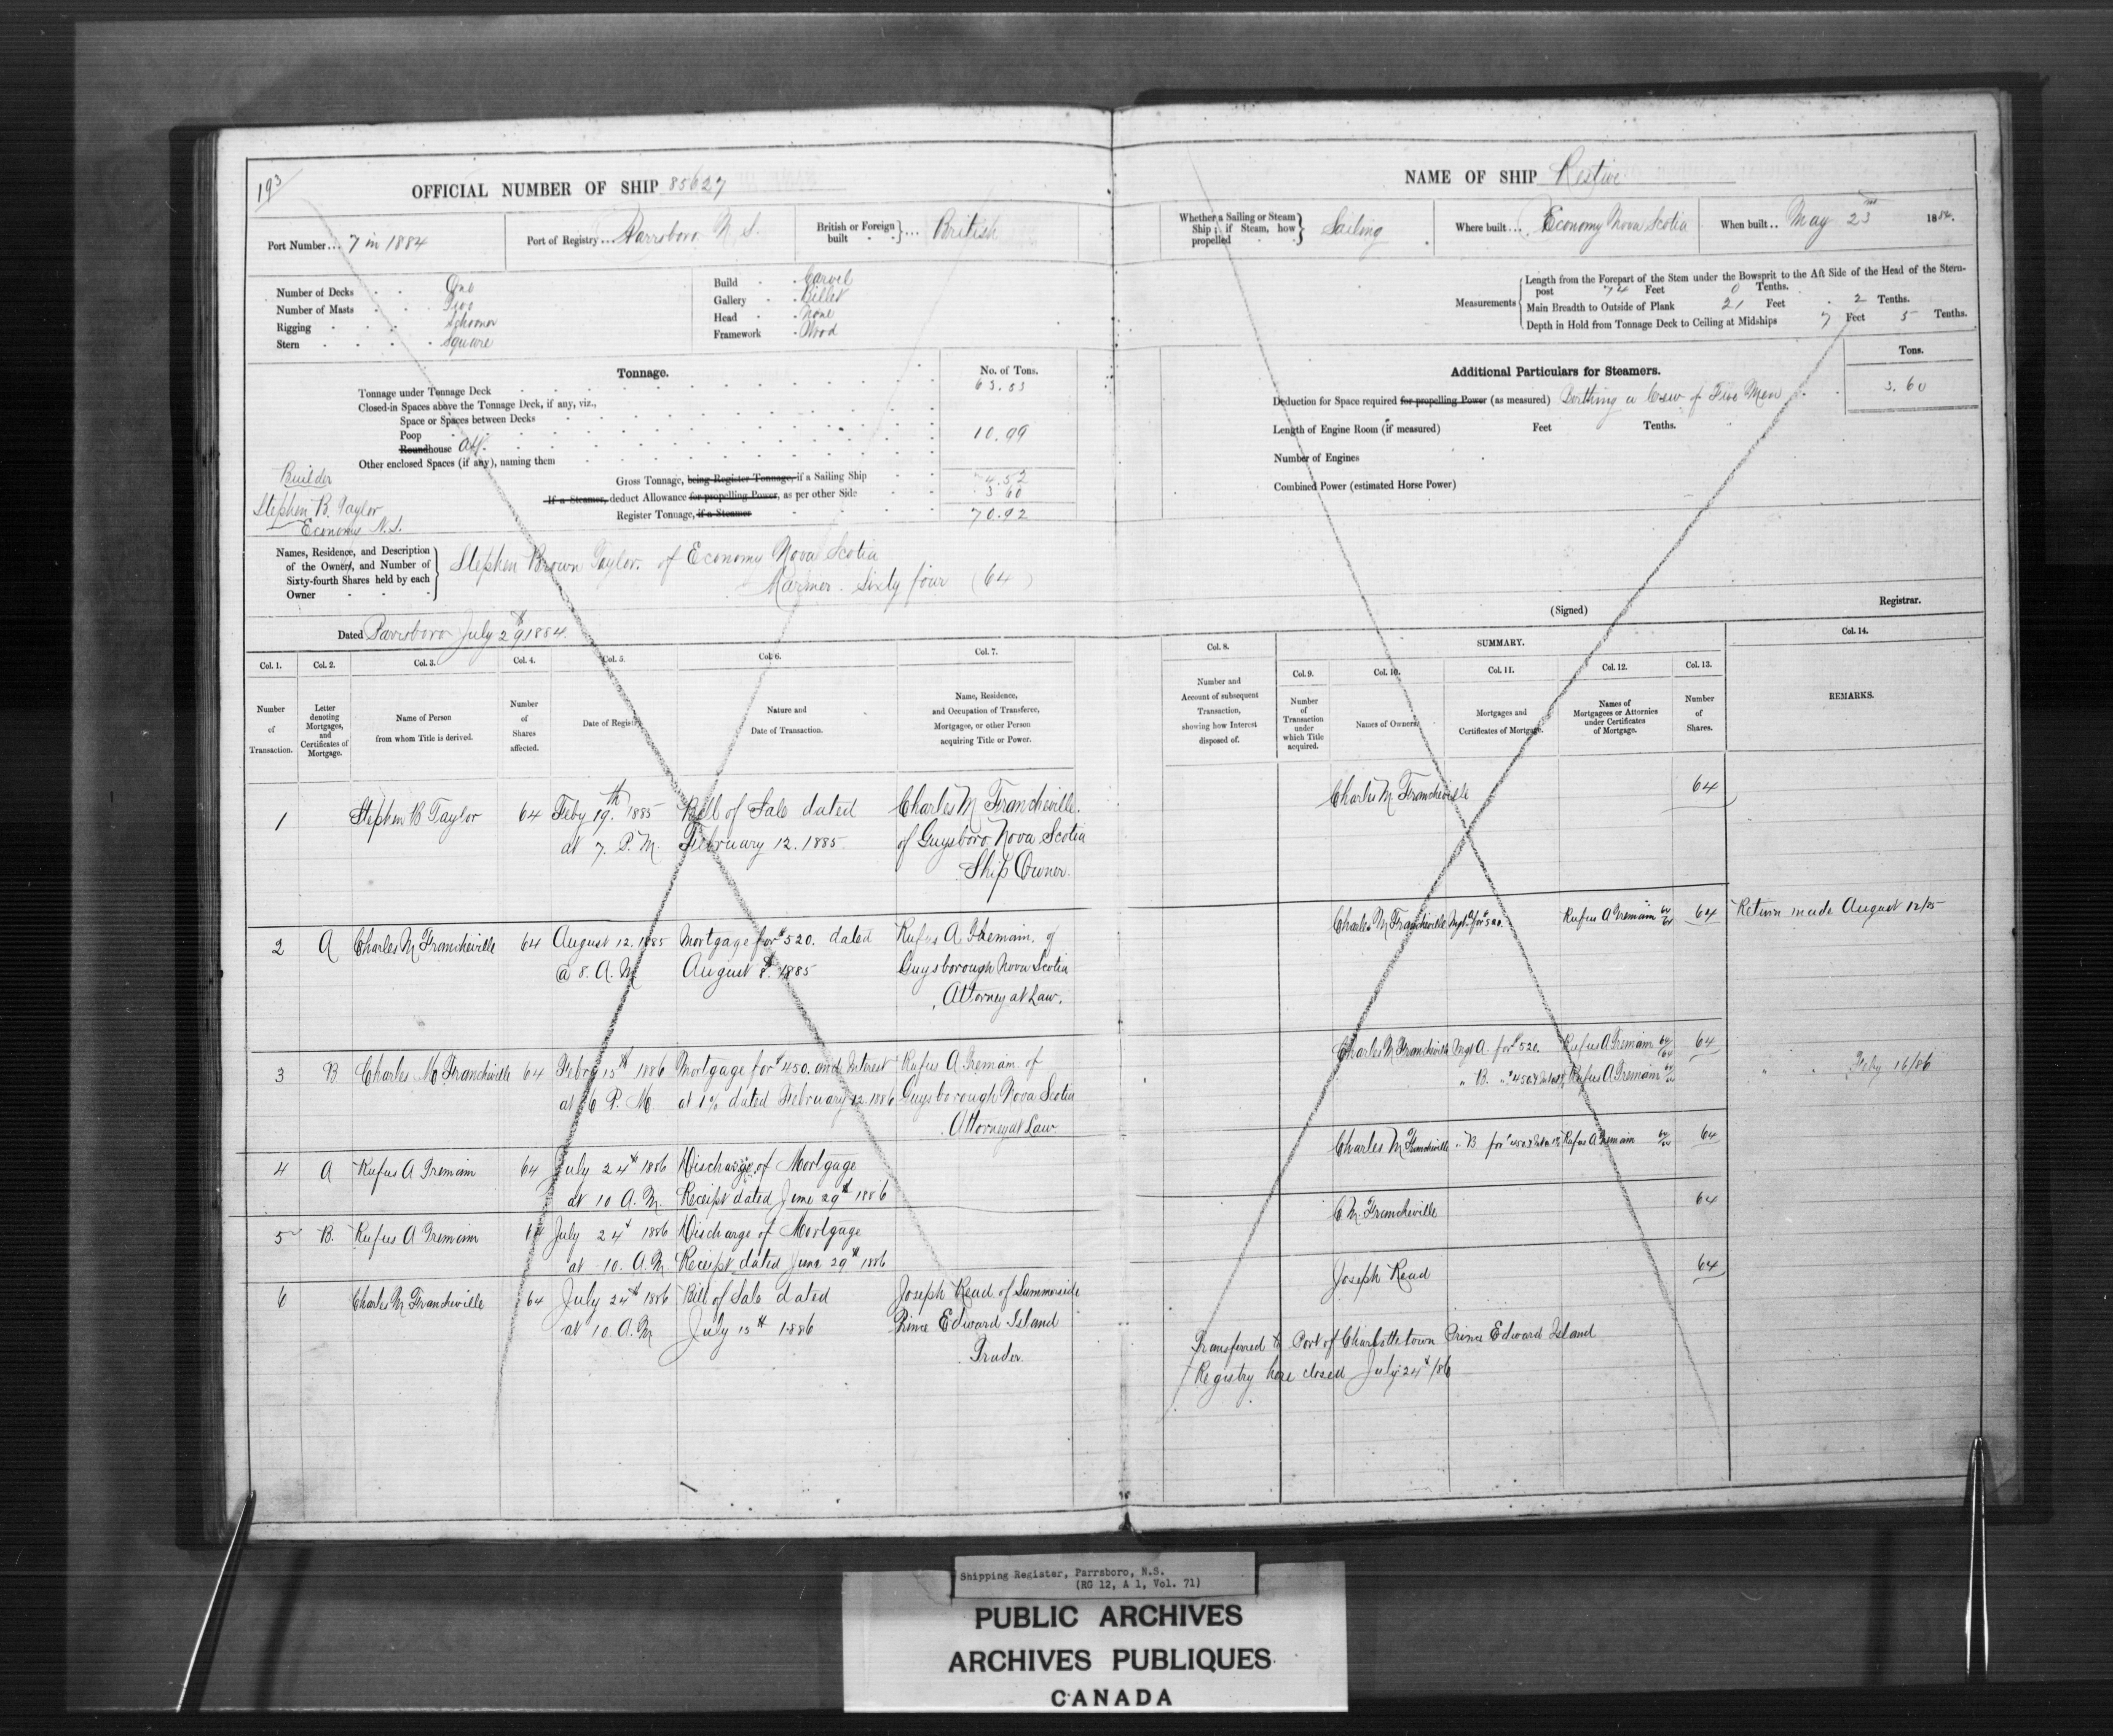 193
OFFICIAL NUMBER OF SHIP 85627
Port Number... 7 in 1884
Port of Registry... Parrsboro N. S.
British or Foreign built } ... British
Number of Decks One
Number of Masts Two
Rigging Schooner
Stern Square
Build Carvel
Gallery Billet
Head None
Framework Wood
Tonnage.
No. of Tons.
Tonnage under Tonnage Deck 63.53
Closed-in Spaces above the Tonnage Deck, if any, viz.,
Space or Spaces between Decks
Poop
Roundhouse Aft. 10.99
Other enclosed Spaces (if any), naming them
Gross Tonnage, being Register Tonnage, if a Sailing Ship 74.52
If a Steamer, deduct Allowance for propelling Power, as per other Side 3 60
Register Tonnage, if a Steamer 70.92
Builder
Stephen B. Taylor
Economy N.S.
Names, Residence, and Description of the Owner, and Number of Sixty-fourth Shares held by each Owner
Stephen Brown Taylor. of Economy Nova Scotia
Mariner. Sixty four (64)
Dated Parrsboro July 29th 1884.
NAME OF SHIP Restive
Whether a Sailing or Steam Ship; if Steam, how propelled } Sailing
Where built... Economy Nova Scotia
When built.. May 23rd 1884.
Measurements
Length from the Forepart of the Stem under the Bowsprit to the Aft Side of the Head of the Stern-
post 74 Feet 0 Tenths.
Main Breadth to Outside of Plank 21 Feet 2 Tenths.
Depth in Hold from Tonnage Deck to Ceiling at Midships 7 Feet 5 Tenths.
Tons.
Additional Particulars for Steamers.
Deduction for Space required for propelling Power (as measured) Berthing a Crew of Five Men 3.60
Length of Engine Room (if measured) Feet Tenths.
Number of Engines
Combined Power (estimated Horse Power)
(Signed) Registrar.
Col. 1. Col. 2. Col. 3. Col. 4. Col. 5. Col. 6. Col. 7.
Number of Transaction.
Letter denoting Mortgages, and Certificates of Mortgage.
Name of Person from whom Title is derived.
Number of Shares affected.
Date of Registry.
Nature and Date of Transaction.
Name, Residence, and Occupation of Transferee, Mortgagee, or other Person acquiring Title or Power.
1 Stephen B Taylor 64 Feby 19th. 1885 Bill of Sale dated Charles M Francheville.
at 7. P. M. February 12. 1885. of Guysboro Nova Scotia
Ship Owner.
2 A Charles M Francheville 64 August 12. 1885 Mortgage for $520. dated Rufus A Tremain. of
@ 8. A. M August 8th. 1885 Guysborough Nova Scotia
Attorney at Law.
3 B Charles M Francheville 64 Febry 15th 1886 Mortgage for $450. and Interest Rufus A Tremain of
at 6 P. M dated February 12. 1886 Guysborough Nova Scotia
Attorney at Law
4 A Rufus A Tremain 64 July 24th 1886 Discharge of Mortgage
at 10 A. M. Receipt dated June 29th 1886
5 B. Rufus A Tremain 64 July 24th 1886 Discharge of Mortgage
at 10. A. M. Receipt dated June 29th 1886
6 Charles M Francheville 64 July 24th 1886 Bill of Sale dated Joseph Read of Summerside
at 10 A. M July 15th 1886 Prince Edward Island
Trader.
Col. 8. SUMMARY. Col. 14.
Col. 9. Col. 10. Col. 11. Col. 12. Col. 13.
Number and Account of subsequent Transaction, showing how Interest disposed of.
Number of Transaction under which Title acquired.
Names of Owners.
Mortgages and Certificates of Mortgage.
Names of Mortgagees or Attornies under Certificates of Mortgage.
Number of Shares.
REMARKS.
Charles M. Francheville 64
Charles M Francheville Mgt A for $520. Rufus A Tremain 64/64 64 Return made August 12/85
Charles M Francheville Mgt A. for $520. Rufus A Tremain 64/64 64
" B. " $450 Rufus A Tremain 64/64 " " Feby 16/86
Charles M Francheville " B for $450 Rufus A Tremain 64/64 64
C M. Francheville 64
Joseph Read 64
Transferred to Port of Charlottetown Prince Edward Island
Registry here closed July 24th/86
Shipping Register, Parrsboro, N.S.
(RG 12, A 1, Vol. 71)
PUBLIC ARCHIVES
ARCHIVES PUBLIQUES
CANADA